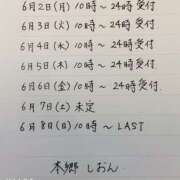 6月2日(月) 10時〜24時受付
6月3日(火) 10時〜24時受付
6月4日(水) 10時〜24時受付
6月5日(木) 10時〜24時受付
6月6日(金) 10時〜24時受付
6月7日(土) 未定
6月8日(日) 10時〜LAST
本郷 しおん